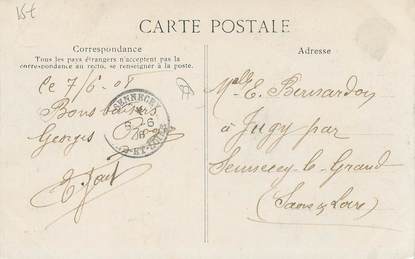 15€
CARTE POSTALE
Correspondance
Tous les pays étrangers n'acceptent pas la
correspondance au recto, se renseigner à la poste.
Adresse
Ce 7/6 - 08
Bons baisers
Georges
SENNECEY
Mlle E. Bernardon
à Jugy par
Sennecey-le-Grand
(Saône & Loire)